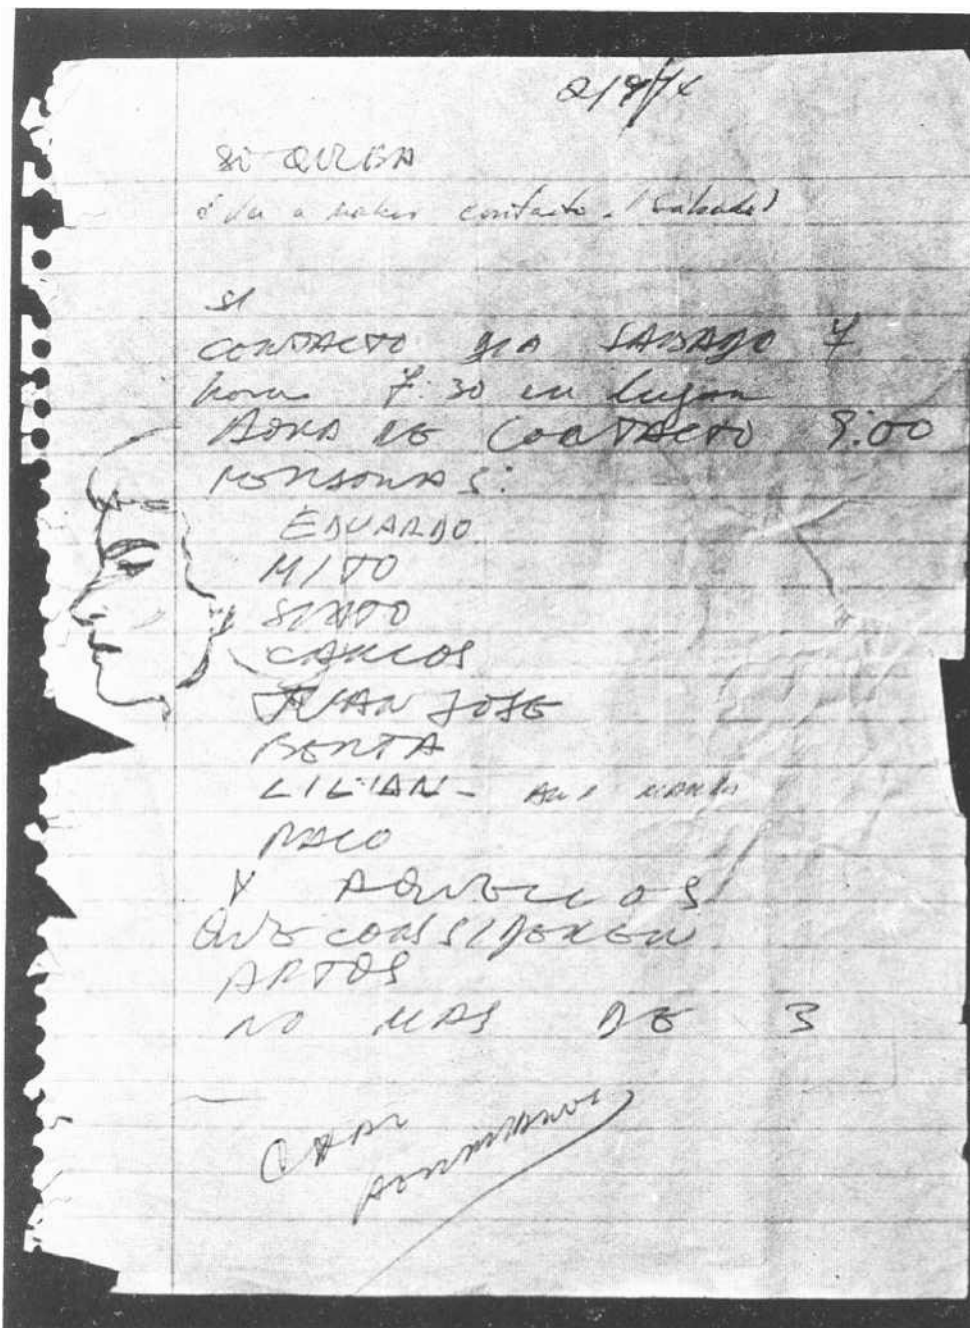 ¿Va a haber contacto. (Sábado)
SI
CONTACTO DIA SABADO 7
hora 7:30 en lugar
HORA DE CONTACTO 9:00
PERSONAS:
EDUARDO
MITO
SIXTO
CARLOS
JUAN JOSE
BERTA
LILIAN -
PACO
Y AQUELLOS
QUE CONSSIDEREN
APTOS
NO MAS DE 3